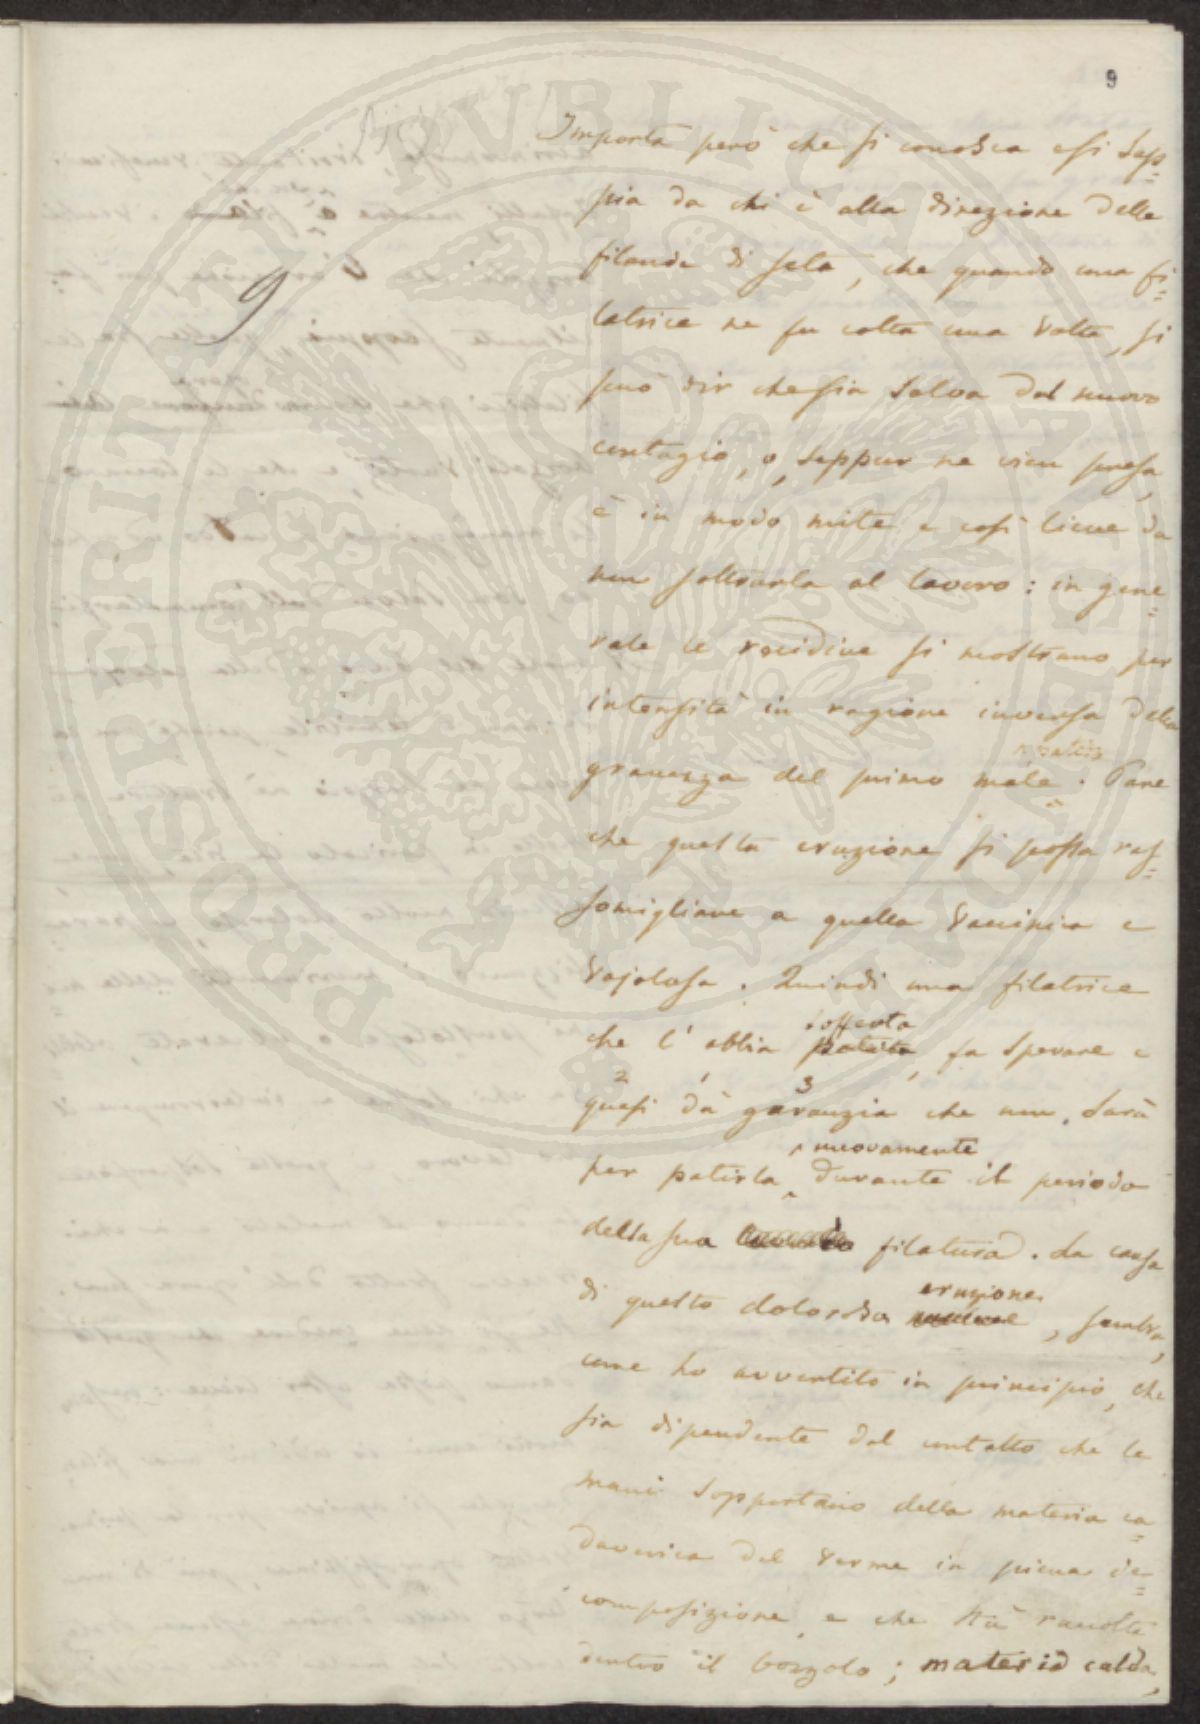 9
Importa però che si conosca e si sap=
pia da chi è alla direzione delle
filande di seta, che quando una fi=
latrice ne fu colta una volta, si
può dir che sia salva dal nuovo
contagio, o, seppur ne vien presa,
è in modo mite e così lieve da
non sottrarla al lavoro: in gene=
rale le recidive si mostrano per
intensità in ragione inversa della
gravezza del primo male. Pare
che questa eruzione si possa ras=
somigliare a quella vaccinica e
vajolosa. Quindi una filatrice
sofferta
che l'abbia patita, fa sperare e
2 1 3
quasi dà garanzia che non sarà
nuovamente
per patirla durante il periodo
della sua filatura. La causa
eruzione
di questa dolorosa, sembra,
come ho avvertito in principio, che
sia dipendente dal contatto che le
mani sopportano della materia ca=
daverica del verme in piena de=
composizione e che stà raccolta
dentro il bozzolo; materia calda,
9
PROSPERITATI PUBLICAE AUGENDAE